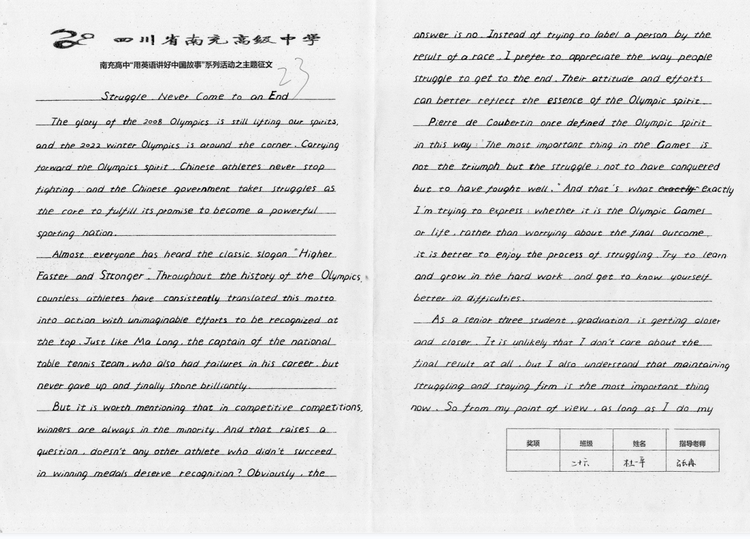 四川省南充高级中学
南充高中“用英语讲好中国故事”系列活动之主题征文
23
Struggle, Never Come to an End
The glory of the 2008 Olympics is still lifting our spirits,
and the 2022 winter Olympics is around the corner. Carrying
forward the Olympics spirit, Chinese athletes never stop
fighting, and the Chinese government takes struggles as
the core to fulfill its promise to become a powerful
sporting nation.
Almost everyone has heard the classic slogan "Higher
Faster and Stronger". Throughout the history of the Olympics,
countless athletes have consistently translated this motto
into action with unimaginable efforts to be recognized at
the top. Just like Ma Long, the captain of the national
table tennis team, who also had failures in his career, but
never gave up and finally shone brilliantly.
But it is worth mentioning that in competitive competitions,
winners are always in the minority. And that raises a
question, doesn't any other athlete who didn't succeed
in winning medals deserve recognition? Obviously, the
answer is no. Instead of trying to label a person by the
result of a race, I prefer to appreciate the way people
struggle to get to the end. Their attitude and efforts
can better reflect the essence of the Olympic spirit.
Pierre de Coubertin once defined the Olympic spirit
in this way: "The most important thing in the Games is
not the triumph but the struggle; not to have conquered
but to have fought well." And that's what exactly exactly
I'm trying to express: whether it is the Olympic Games
or life, rather than worrying about the final outcome,
it is better to enjoy the process of struggling. Try to learn
and grow in the hard work, and get to know yourself
better in difficulties.
As a senior three student, graduation is getting closer
and closer. It is unlikely that I don't care about the
final result at all, but I also understand that maintaining
struggling and staying firm is the most important thing
now. So from my point of view, as long as I do my
奖项 班级 姓名 指导老师
二十六 杜一平